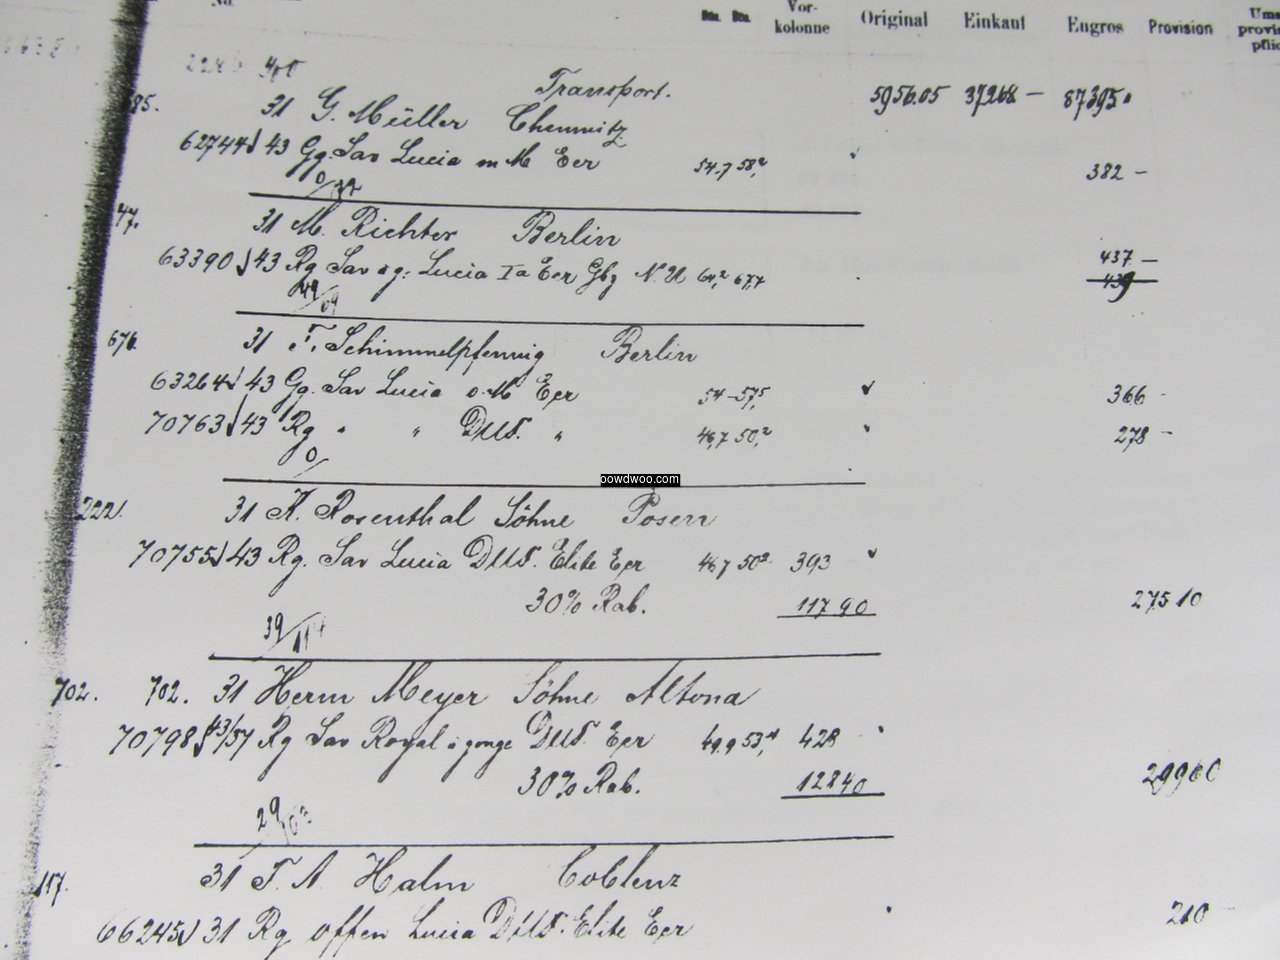 No.
Vor-kolonne Original Einkauf Engros Provision
Transport. 5956.05 37268 — 87395
85. 31 G. Müller Chemnitz
62744 43 Gg. Sav Lucia m M Eer 54,7 58,2 382 —
47. 31 M. Richter Berlin
437 —
63390 43 Rg Sav Lucia Ia Eer Gbg 64,2 67,7
439
676. 31 F. Schimmelpfennig Berlin
63264 43 Gg. Sav Lucia o. M Eer 54-57,5 366 -
70763 43 Rg " " DUS. " 46,7 50,2 278 —
0/
oowdwoo.com
222. 31 A. Rosenthal Söhne Posen
70755 43 Rg. Sav Lucia DUS. Elite Eer 46,7 50,2 393
30% Rab. 117 90 275 10
39/114
702. 702. 31 Herm Meyer Söhne Altona
70798 43/57 Rg Sav Royal à gonge DUS. Eer 49,9 53,4 428
30% Rab. 128 40 299 60
29/103
117. 31 F. A. Halm Coblenz
66245 31 Rg offen Lucia DUS. Elite Eer 210 —